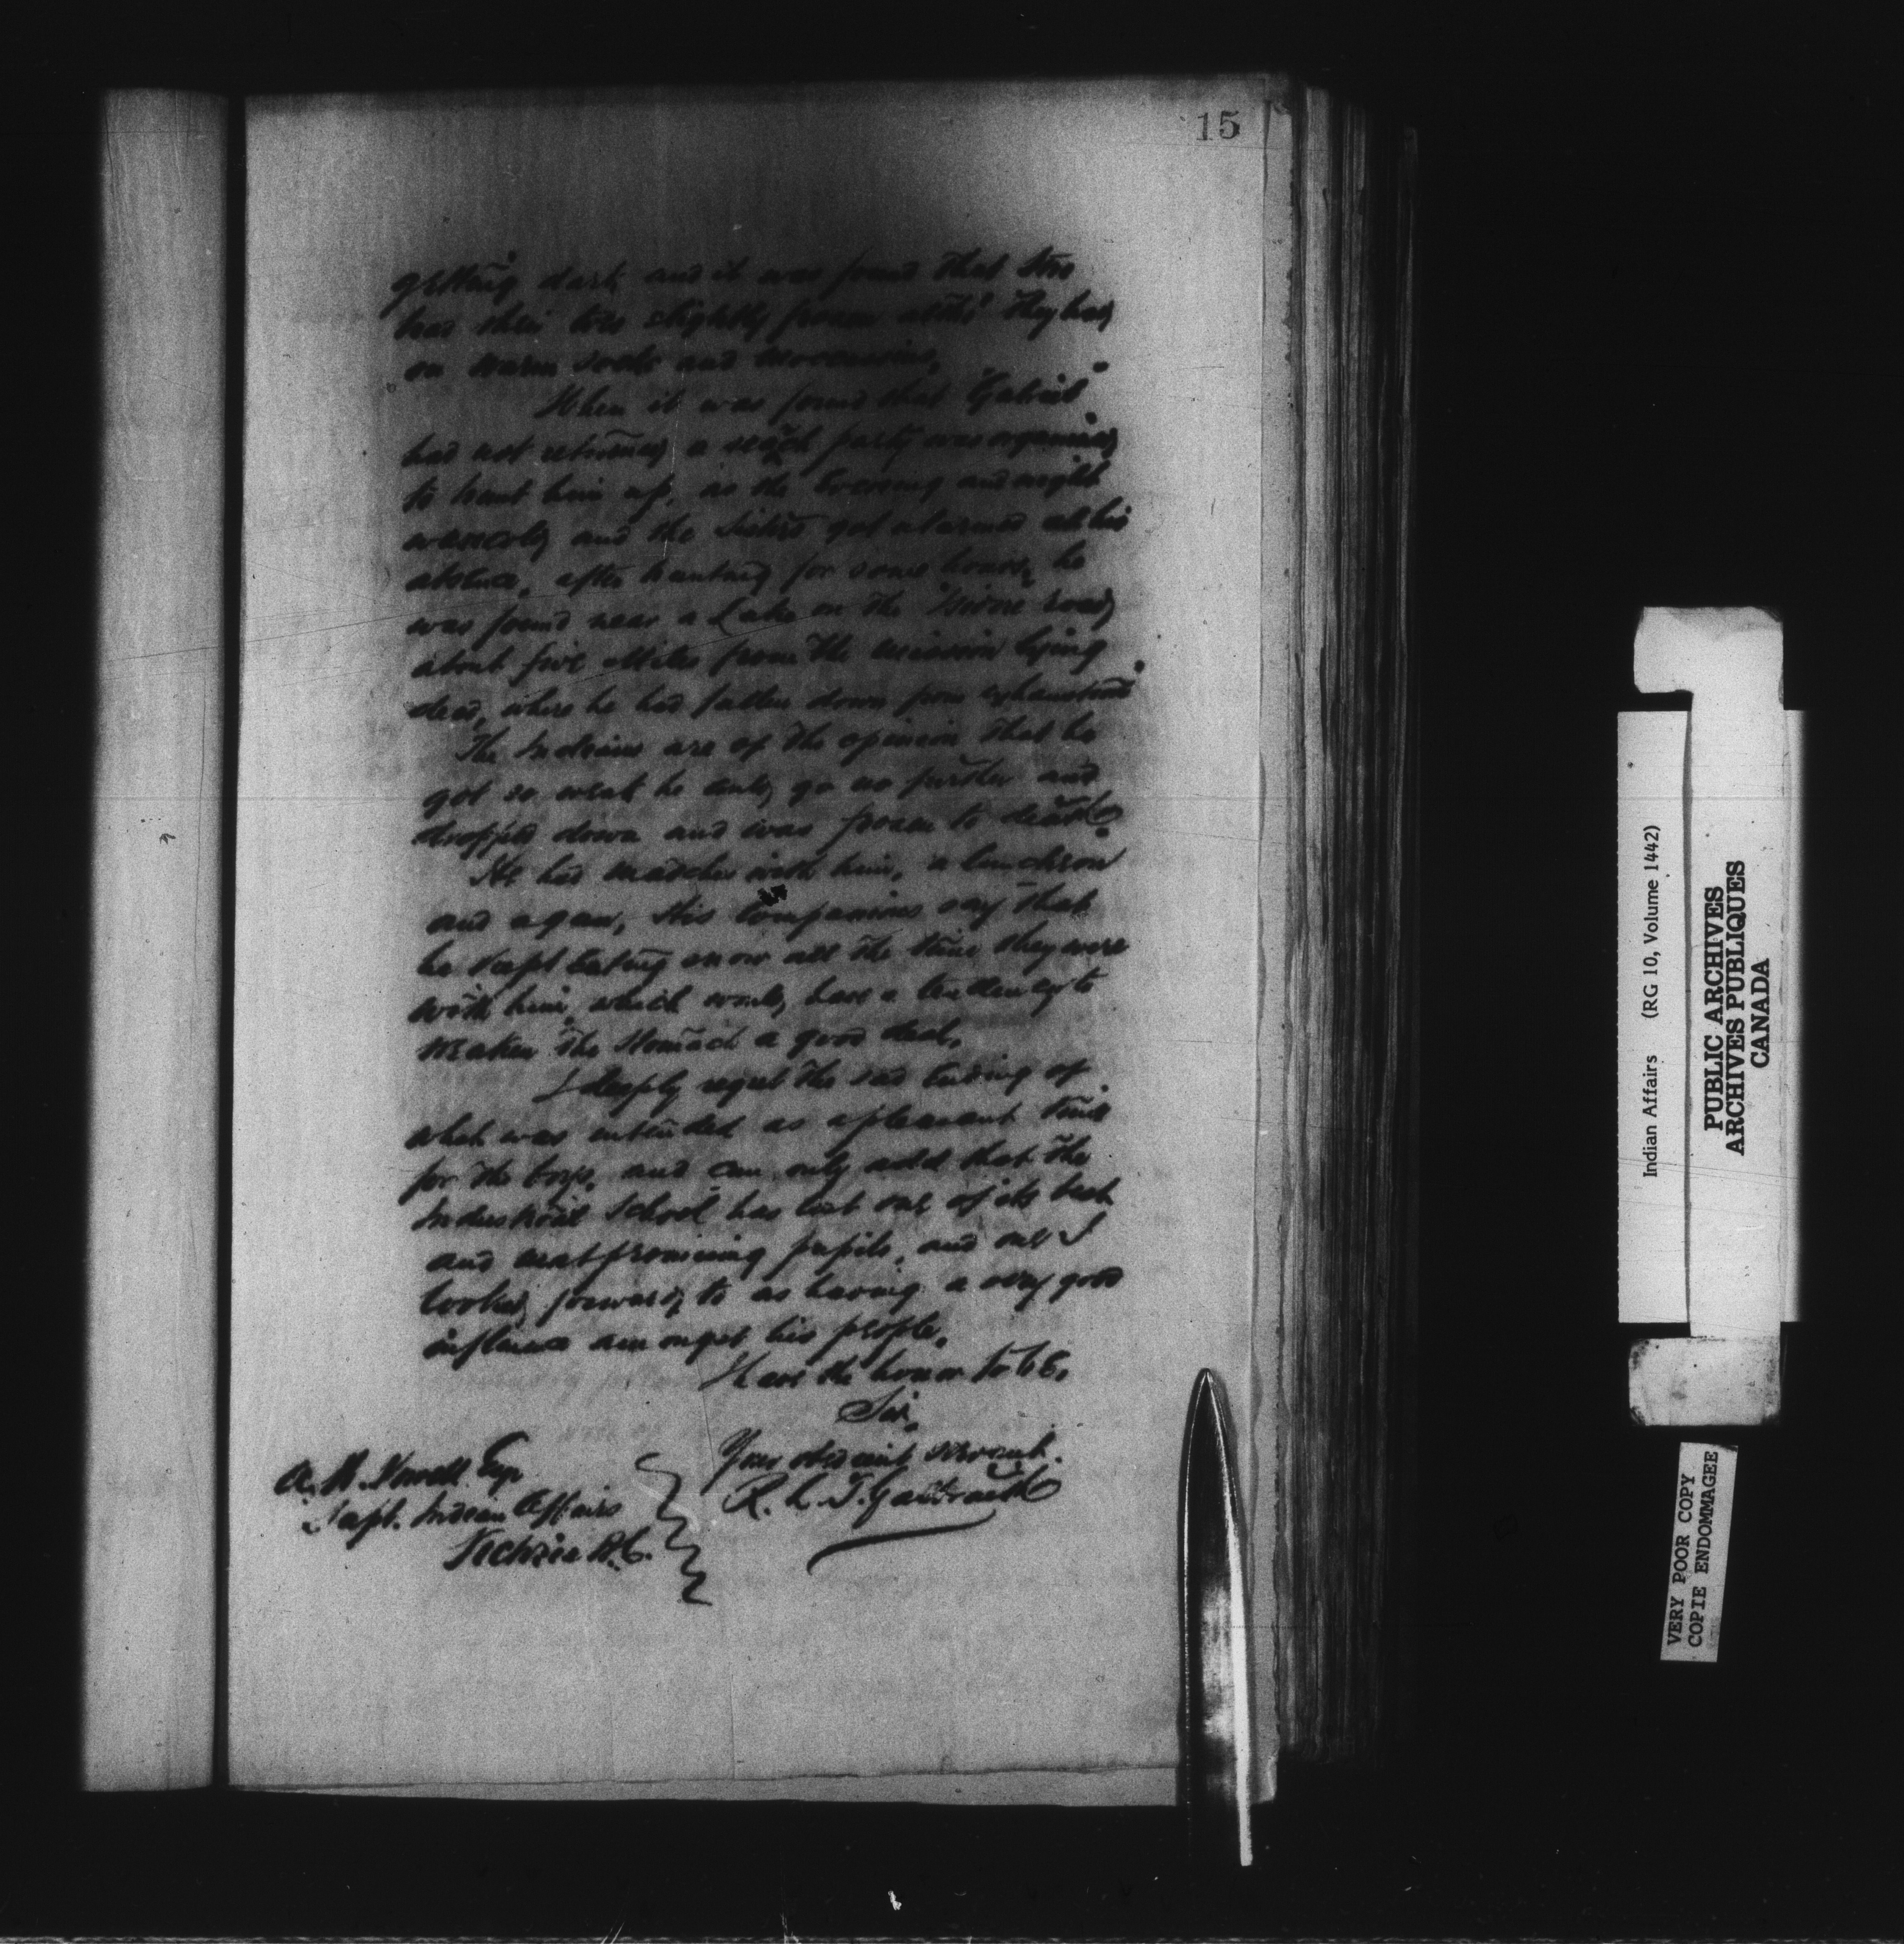 15
getting dark and it was found that two
had their toes slightly frozen altho' they had
on warm socks and moccasins.
When it was found that "Gabriel"
had not returned, a search party was organized
to hunt him up, as the Evening and night
was cold, and the Sisters got alarmed at his
absence, after hunting for some hours, he
was found near a Lake on the road,
about five Miles from the Mission lying
dead, where he had fallen down from exhaustion.
The Indians are of the opinion that he
got so weak he could go no further and
dropped down and was frozen to death.
He had matches with him, a luncheon
and a gun, His Companions say that
he kept Eating snow all the time they were
with him, which would have a tendency to
weaken the Stomach a good deal.
I deeply regret the sad Ending of
what was intended as a pleasant time
for the boys, and can only add that the
Industrial School has lost one of its best
and most promising pupils, and one I
looked forward to as having a very good
influence amongst his people.
I have the honor to be,
Sir,
Your obedient servant.
R. L. T. Galbraith
A. W. Vowell Esq
Supt. Indian Affairs
Victoria B.C.
Indian Affairs (RG 10, Volume 1442)
PUBLIC ARCHIVES
ARCHIVES PUBLIQUES
CANADA
VERY POOR COPY
COPIE ENDOMMAGEE